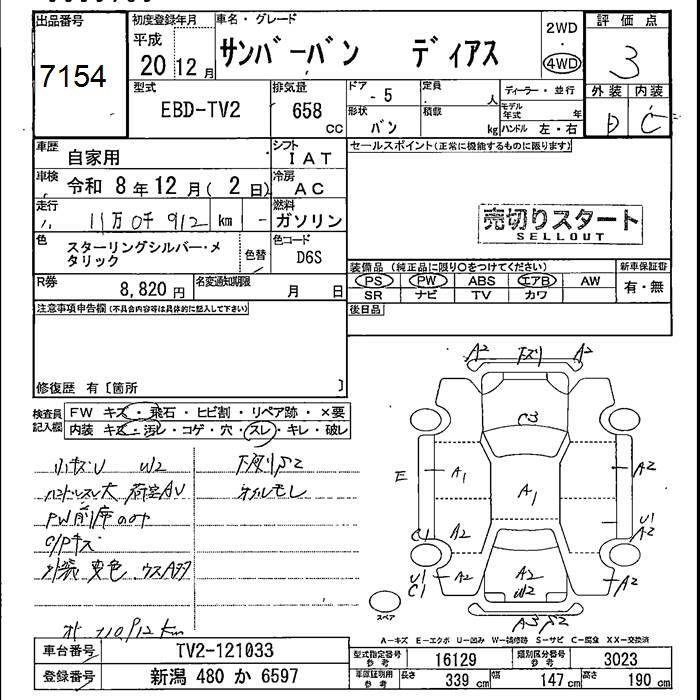 出品番号 7154
初度登録年月 平成 20 12月
車名・グレード サンバーバン ディアス
2WD・4WD
評価点 3
外装 D 内装 C
型式 EBD-TV2
排気量 658 CC
ドア - 5
形状 バン
定員 人
積載 kg
ディーラー・並行
モデル年式 年
ハンドル 左・右
車歴 自家用
シフト IAT
車検 令和 8年12月(2日)
冷房 AC
走行 11万0千912 km -
燃料 ガソリン
色 スターリングシルバー・メタリック
色替
色コード D6S
R券 8,820円
名変通知期限 月 日
セールスポイント(正常に機能するものに限ります)
売切りスタート
SELLOUT
装備品(純正品に限り○をつけてください)
PS PW ABS エアB AW
SR ナビ TV カワ
新車保証書 有・無
後日品
注意事項申告欄(不具合内容等は具体的に記入して下さい)
修復歴 有〔箇所 〕
検査員記入欄
FW キズ・飛石・ヒビ割・リペア跡・×要
内装 キズ・汚レ・コゲ・穴・スレ・キレ・破レ
小キズU W2
下廻りS2
ハンドルスレ大 荷室AU
オイルモレ
PW前席のみ
O/Pキズ
外装 変色 ウスA多
110912km
A2 下ズリ A2
C3
E A1 A1 A2
C1 A2 U1
U1 C1 A2 A2 W2 A2
A3 S2
スペア
A-キズ E-エクボ U-凹み W-補修跡 S-サビ C-腐食 XX-交換済
車台番号 TV2-121033
登録番号 新潟 480 か 6597
型式指定番号 参考 16129
類別区分番号 参考 3023
車庫証明用 参考 長さ 339 cm 幅 147 cm 高さ 190 cm